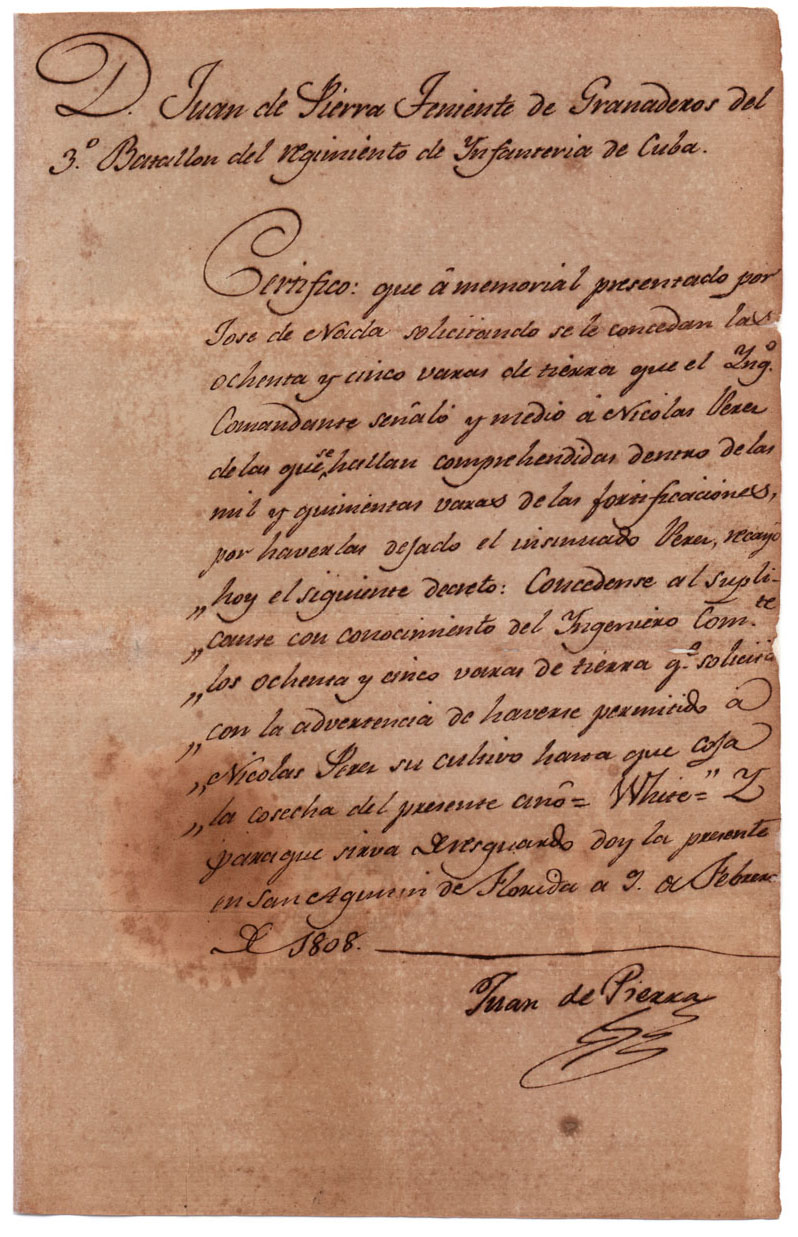 D. Juan de Pierra Teniente de Granaderos del
3.º Batallon del regimiento de Infanteria de Cuba.
Certifico: que â memorial presentado por
Jose de Nada solicitando se le concedan las
ochenta y cinco varas de tierra que el Yng.º
Comandante señaló y medio á Nicolas Perez
de las que se hallan comprehendidas dentro de las
mil y quinientas varas de las fortificaciones,
por haverlas dejado el insinuado Perez, recayó
„ hoy el siguiente decreto: Concedense al supli-
„ cante con conocimiento del Yngeniero Com.te
„ los ochenta y cinco varas de tierra q.e solicita
„ con la advertencia de haverse permitido à
„ Nicolas Perez su cultivo hasta que coja
„ la cosecha del presente año = White =" Y
para que sirva de resguardo doy la presente
en San Agustin de Florida a 9. de Febrero
de 1808.
Juan de Pierra